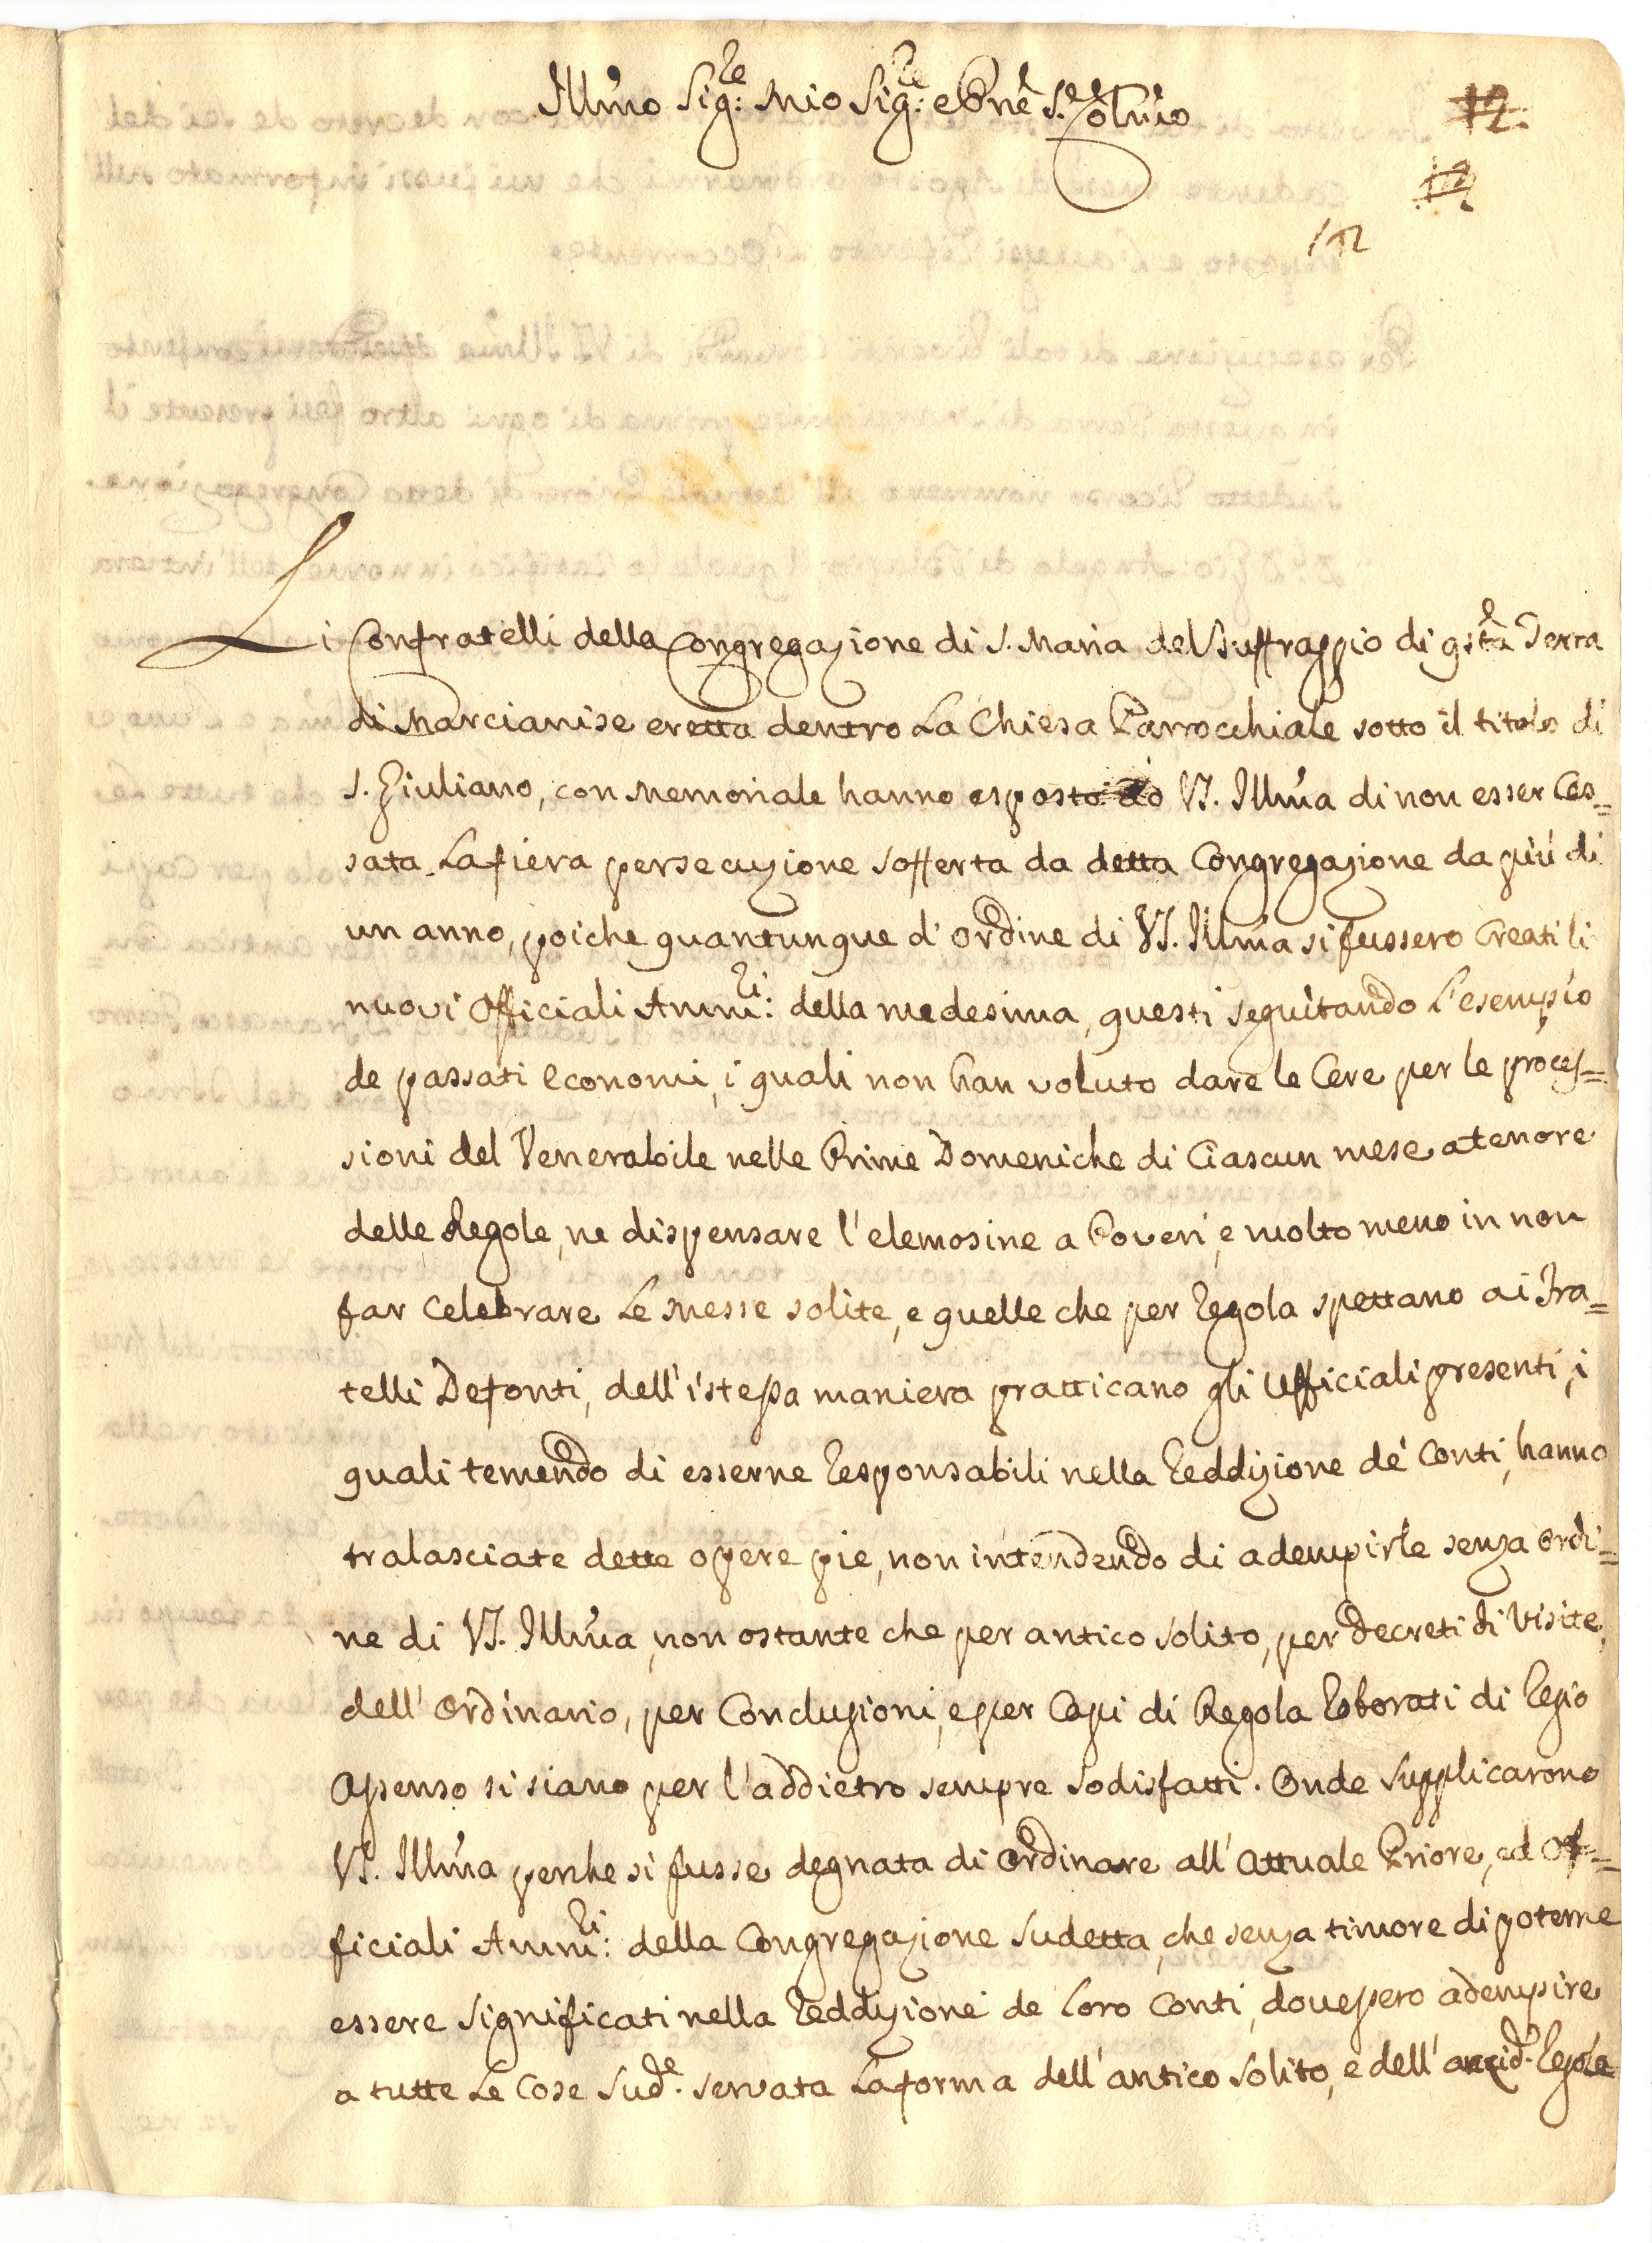 Ill'mo Sig:re Mio Sig:re e P'ne S.re Col'mo
12.
12
112
Li Confratelli della Congregazione di S. Maria del Suffraggio di q'sta Terra
di Marcianise eretta dentro La Chiesa Parrocchiale sotto il titolo di
S. Giuliano, con memoriale hanno esposto a VS. Ill'ma di non esser Ces=
sata La fiera persecuzione sofferta da detta Congregazione da più di
un anno, poiche quantunque d'ordine di VS. Ill'ma si fussero Creati li
nuovi Officiali Amm:ri della medesima, questi seguitando L'esempio
de passati Economi, i quali non han voluto dare le Cere per le proces=
sioni del Venerabile nelle Prime Domeniche di Ciascun mese a tenore
delle Regole, ne dispensare l'elemosine a Poveri, e molto meno in non
far Celebrare Le Messe solite, e quelle che per regola spettano ai Fra=
telli Defonti, dell'istessa maniera pratticano gli Ufficiali presenti, i
quali temendo di esserne responsabili nella reddizione de' Conti, hanno
tralasciate dette opere pie, non intendendo di adempirle senza ordi=
ne di VS. Ill'ma, non ostante che per antico solito, per decreti di Visite
dell'ordinario, per Conclusioni, e per Capi di Regola roborati di regio
assenso si siano per l'addietro sempre sodisfatti. Onde supplicarono
VS. Ill'ma perche si fusse degnata di ordinare all'attuale Priore, ed Of=
ficiali Amm:ri della Congregazione sudetta, che senza timore di poterne
essere significati nella reddizione de loro Conti, dovessero adempire
a tutte Le Cose sud.e servata La forma dell'antico solito, e dell' regole